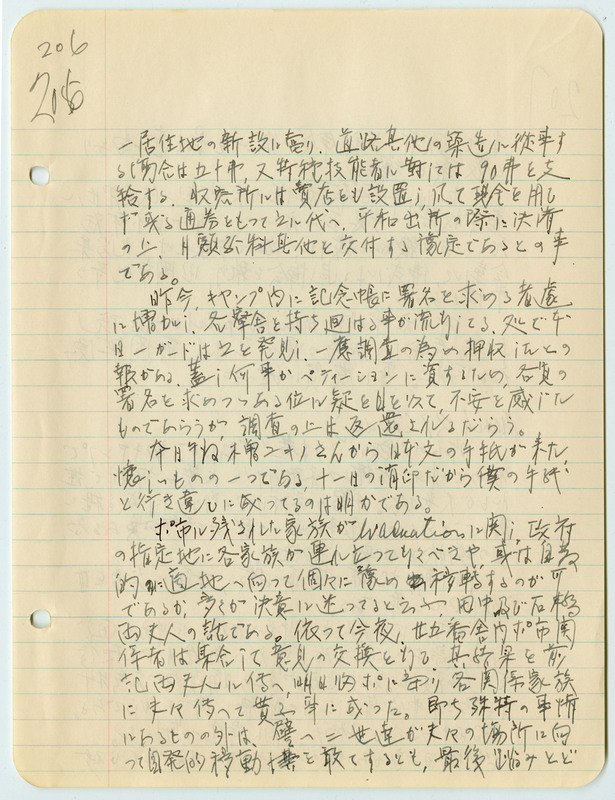 206
205
一居住地の新設に當り、道路其他の築造に從事す
る場合は五十弗、又特種技能者に對しては90弗を支
給する。収容所には賣店をも設置し、凡て現金を用ひ
ず或る通券をもって之に代へ、平和出所の際に決済
の上、月額給料其他を交付する豫定であるとの事
である。
昨今、キャンプ内に記念帳に署名を求める者處
に増加し、各寮舎を持ち廻はる事が流行してる。処で本
日一ガードは之を発見し、一應調査の為め押収したとの
報がある。蓋し何事かペティーションに資するため、各自の
署名を求めつつある位に疑を以て、不安を感じた
ものであらうが、調査の上は返還されるだらう。
本日午后 木曽 さんから日本文の手紙が来た。
懐しいものの一つである。十一日の消印だから僕の手紙
と行き違ひに成ってるのは明かである。
ポ市に残された家族がEvacuationに関し、政府
の指定地に各家族が連れ立って行くべきや、或は自発
的に適地へ向って個々に豫め移轉するのが可
であるか、多くが決意に迷ってると云ふ、田中及び石橋
両夫人の話である。依って今夜、廿五番舎内ポ市関
係者は集合して意見の交換をもする。其結果を前
記両夫人に傳へ、明日 ポに帰り各関係家族
に夫々傳へて貰ふ事に成った。即ち殊特の事情
にあるものの外は、譬へ二世達が夫々の場所に向
って自発的移動を敢てするとも、最後 みとど